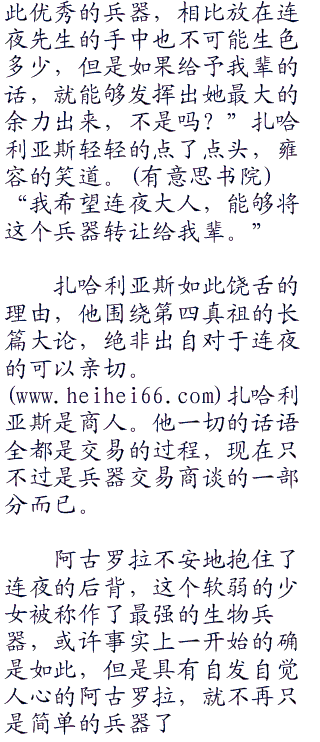 此优秀的兵器，相比放在连
夜先生的手中也不可能生色
多少，但是如果给予我辈的
话，就能够发挥出她最大的
余力出来，不是吗？”扎哈
利亚斯轻轻的点了点头，雍
容的笑道。(有意思书院)
“我希望连夜大人，能够将
这个兵器转让给我辈。”
扎哈利亚斯如此饶舌的
理由，他围绕第四真祖的长
篇大论，绝非出自对于连夜
的可以亲切。
(www.heihei66.com)扎哈利
亚斯是商人。他一切的话语
全都是交易的过程，现在只
不过是兵器交易商谈的一部
分而已。
阿古罗拉不安地抱住了
连夜的后背，这个软弱的少
女被称作了最强的生物兵
器，或许事实上一开始的确
是如此，但是具有自发自觉
人心的阿古罗拉，就不再只
是简单的兵器了